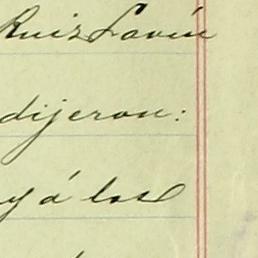 Ruiz Lavín
dijeron:
y á los